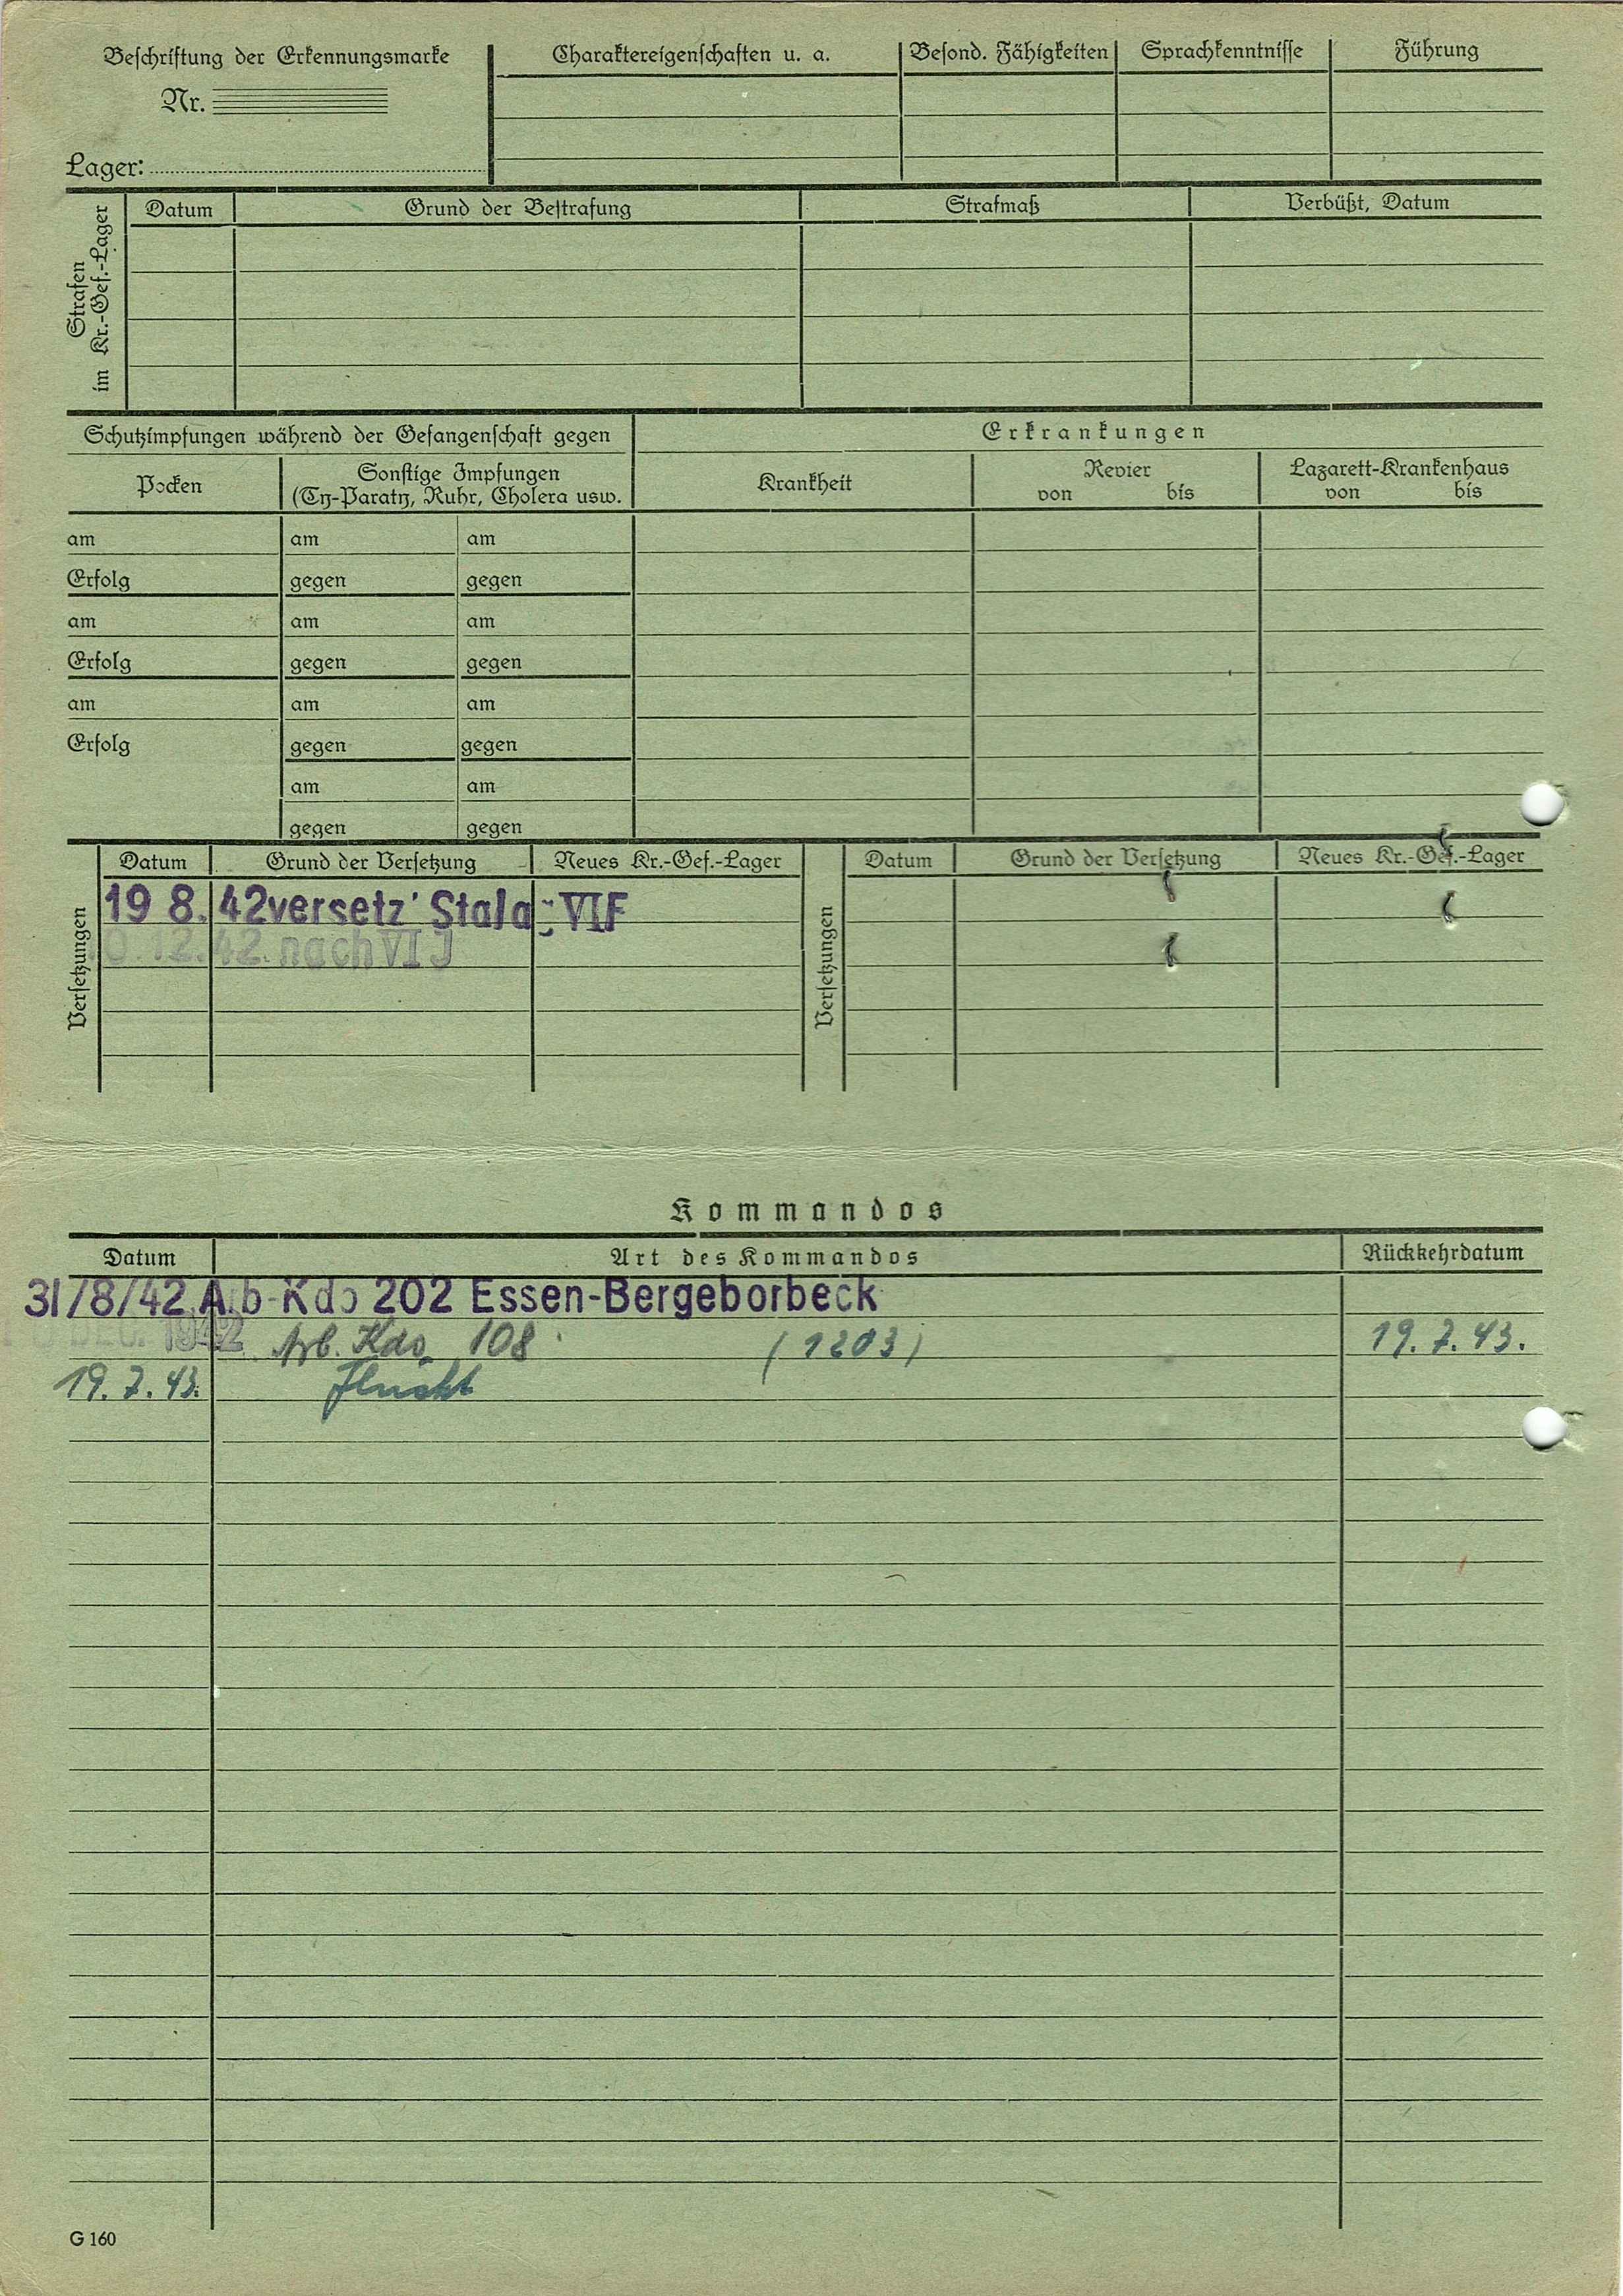 Beschriftung der Erkennungsmarke
Nr.
Lager:
Charaktereigenschaften u. a. Besond. Fähigkeiten Sprachkenntnisse Führung
Strafen
im Kr.-Gef.-Lager
Datum Grund der Bestrafung Strafmaß Verbüßt, Datum
Schutzimpfungen während der Gefangenschaft gegen Erkrankungen
Pocken Sonstige Impfungen
(Ty-Paraty, Ruhr, Cholera usw. Krankheit Revier
von bis Lazarett-Krankenhaus
von bis
am am am
Erfolg gegen gegen
am am am
Erfolg gegen gegen
am am am
Erfolg gegen gegen
am am
gegen gegen
Versetzungen
Datum Grund der Versetzung Neues Kr.-Gef.-Lager
19 8. 42 versetz' Stalag VI F
0.12.42. nach VI J
Versetzungen
Datum Grund der Versetzung Neues Kr.-Gef.-Lager
Kommandos
Datum Art des Kommandos Rückkehrdatum
31/8/42 Arb-Kdo 202 Essen-Bergeborbeck
DEC. 1942 Arb. Kdo 108 (1203) 19.7.43.
19.7.43. Flucht
G 160